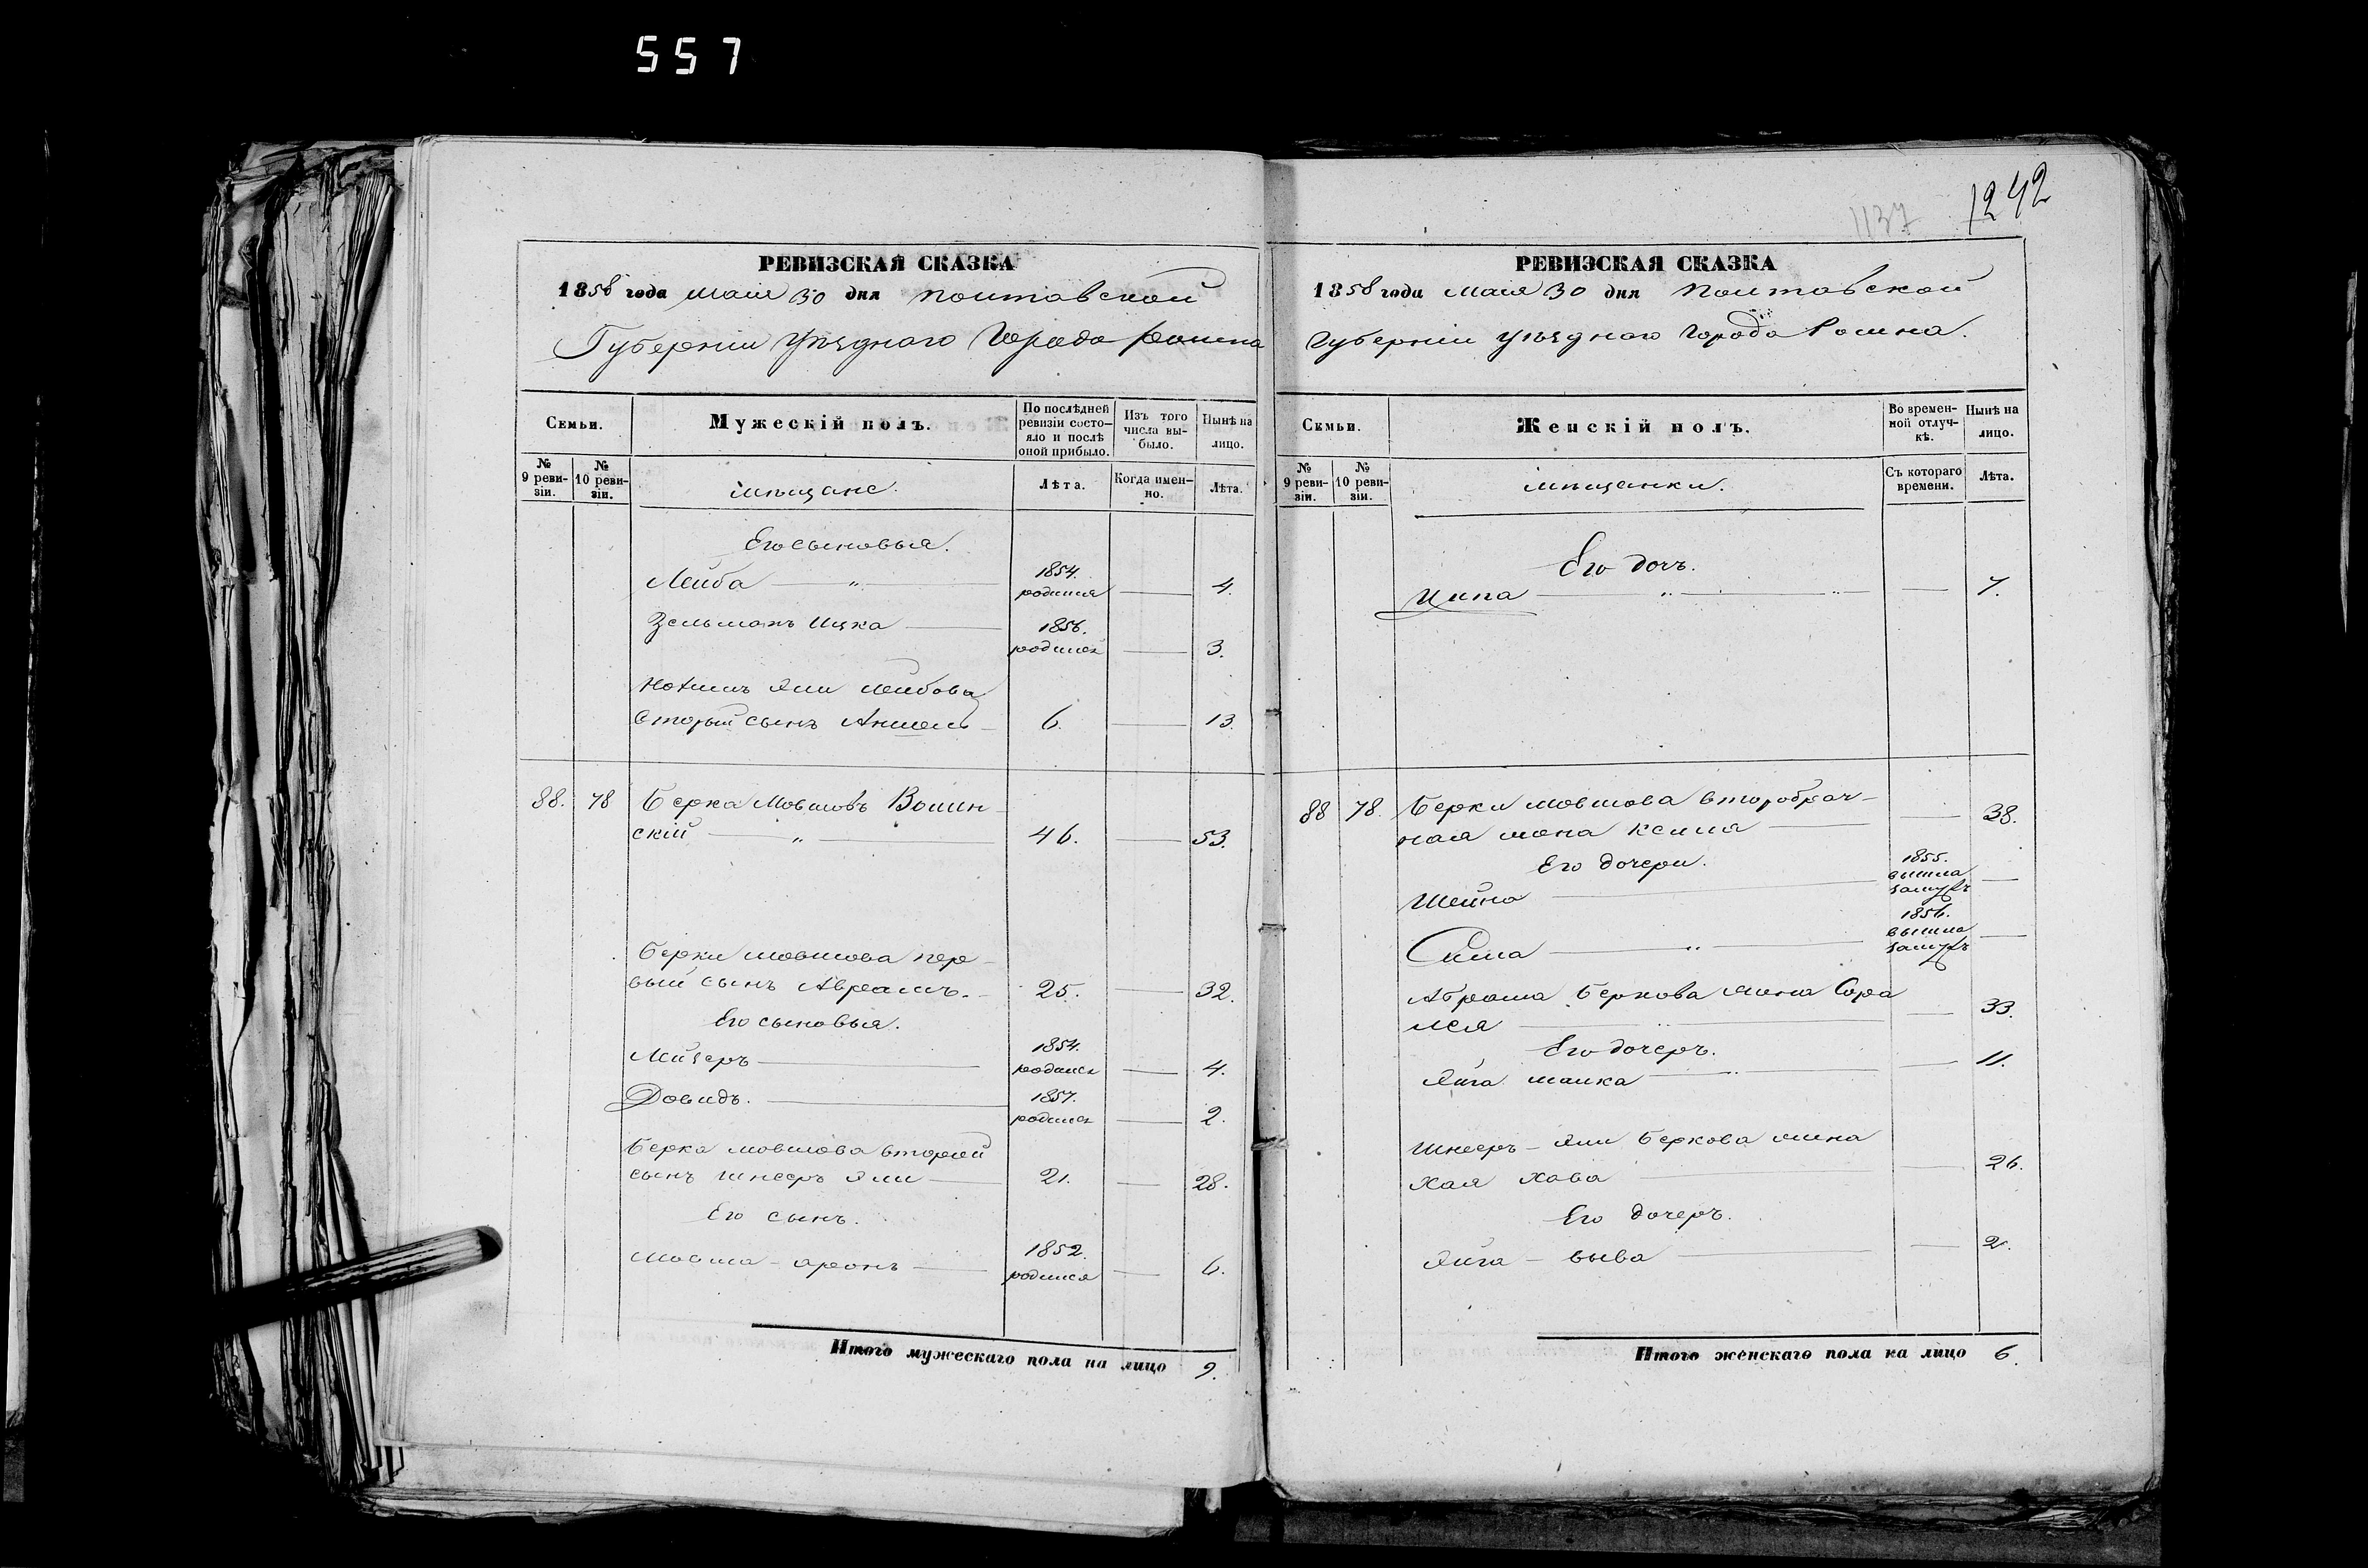 557
1242
1137
РЕВИЗСКАЯ СКАЗКА
1858 года Маія 30 дня Полтавской
Губерніи уѣзднаго Города Ромна
Семьи.
Мужескій полъ.
По послѣдней ревизіи состояло и послѣ оной прибыло.
Изъ того числа выбыло.
Нынѣ на лицо.
№ 9 ревизіи.
№ 10 ревизіи.
мѣщане.
Лѣта.
Когда именно.
Лѣта.
Его сыновья.
Лейба — 1854. родился — 4.
Зельманъ Ицка — 1856. родился — 3.
Лейбова
вторый сынъ Аншель — 6. — 13
88. 78 Берка Мовшовъ Волин-
скій — 46. — 53.
Берки Мовшова пер-
вый сынъ Авраамъ. — 25. — 32.
Его сыновья.
Лейзеръ — 1854. родился — 4.
Довидъ. — 1857. родился — 2.
Берка Мовшова вторый
сынъ Шнееръ Зели — 21. — 28.
Его сынъ.
Мовша - аронъ — 1852. родился — 6.
Итого мужескаго пола на лицо 9.
РЕВИЗСКАЯ СКАЗКА
1858 года Маія 30 дня Полтавской
Губерніи уѣзднаго Города Ромна.
Семьи.
Женскій полъ.
Во временной отлучкѣ.
Нынѣ на лицо.
№ 9 ревизіи.
№ 10 ревизіи.
мѣщанки.
Съ котораго времени.
Лѣта.
Его дочь.
Ципа — — 7.
88 78. Берки Мовшова второбрач-
ная жена — 38.
Его дочери.
Шейна — 1855. вышла замужъ —
Сима — 1856. вышла замужъ —
Абрама Беркова жена Сора
Лея — — 33.
Его дочеръ.
Фейга малка — — 11.
Шнееръ - Зели Беркова жена
Хая Хава — — 26.
Его дочеръ.
Фейга - — 2.
Итого женскаго пола на лицо 6.